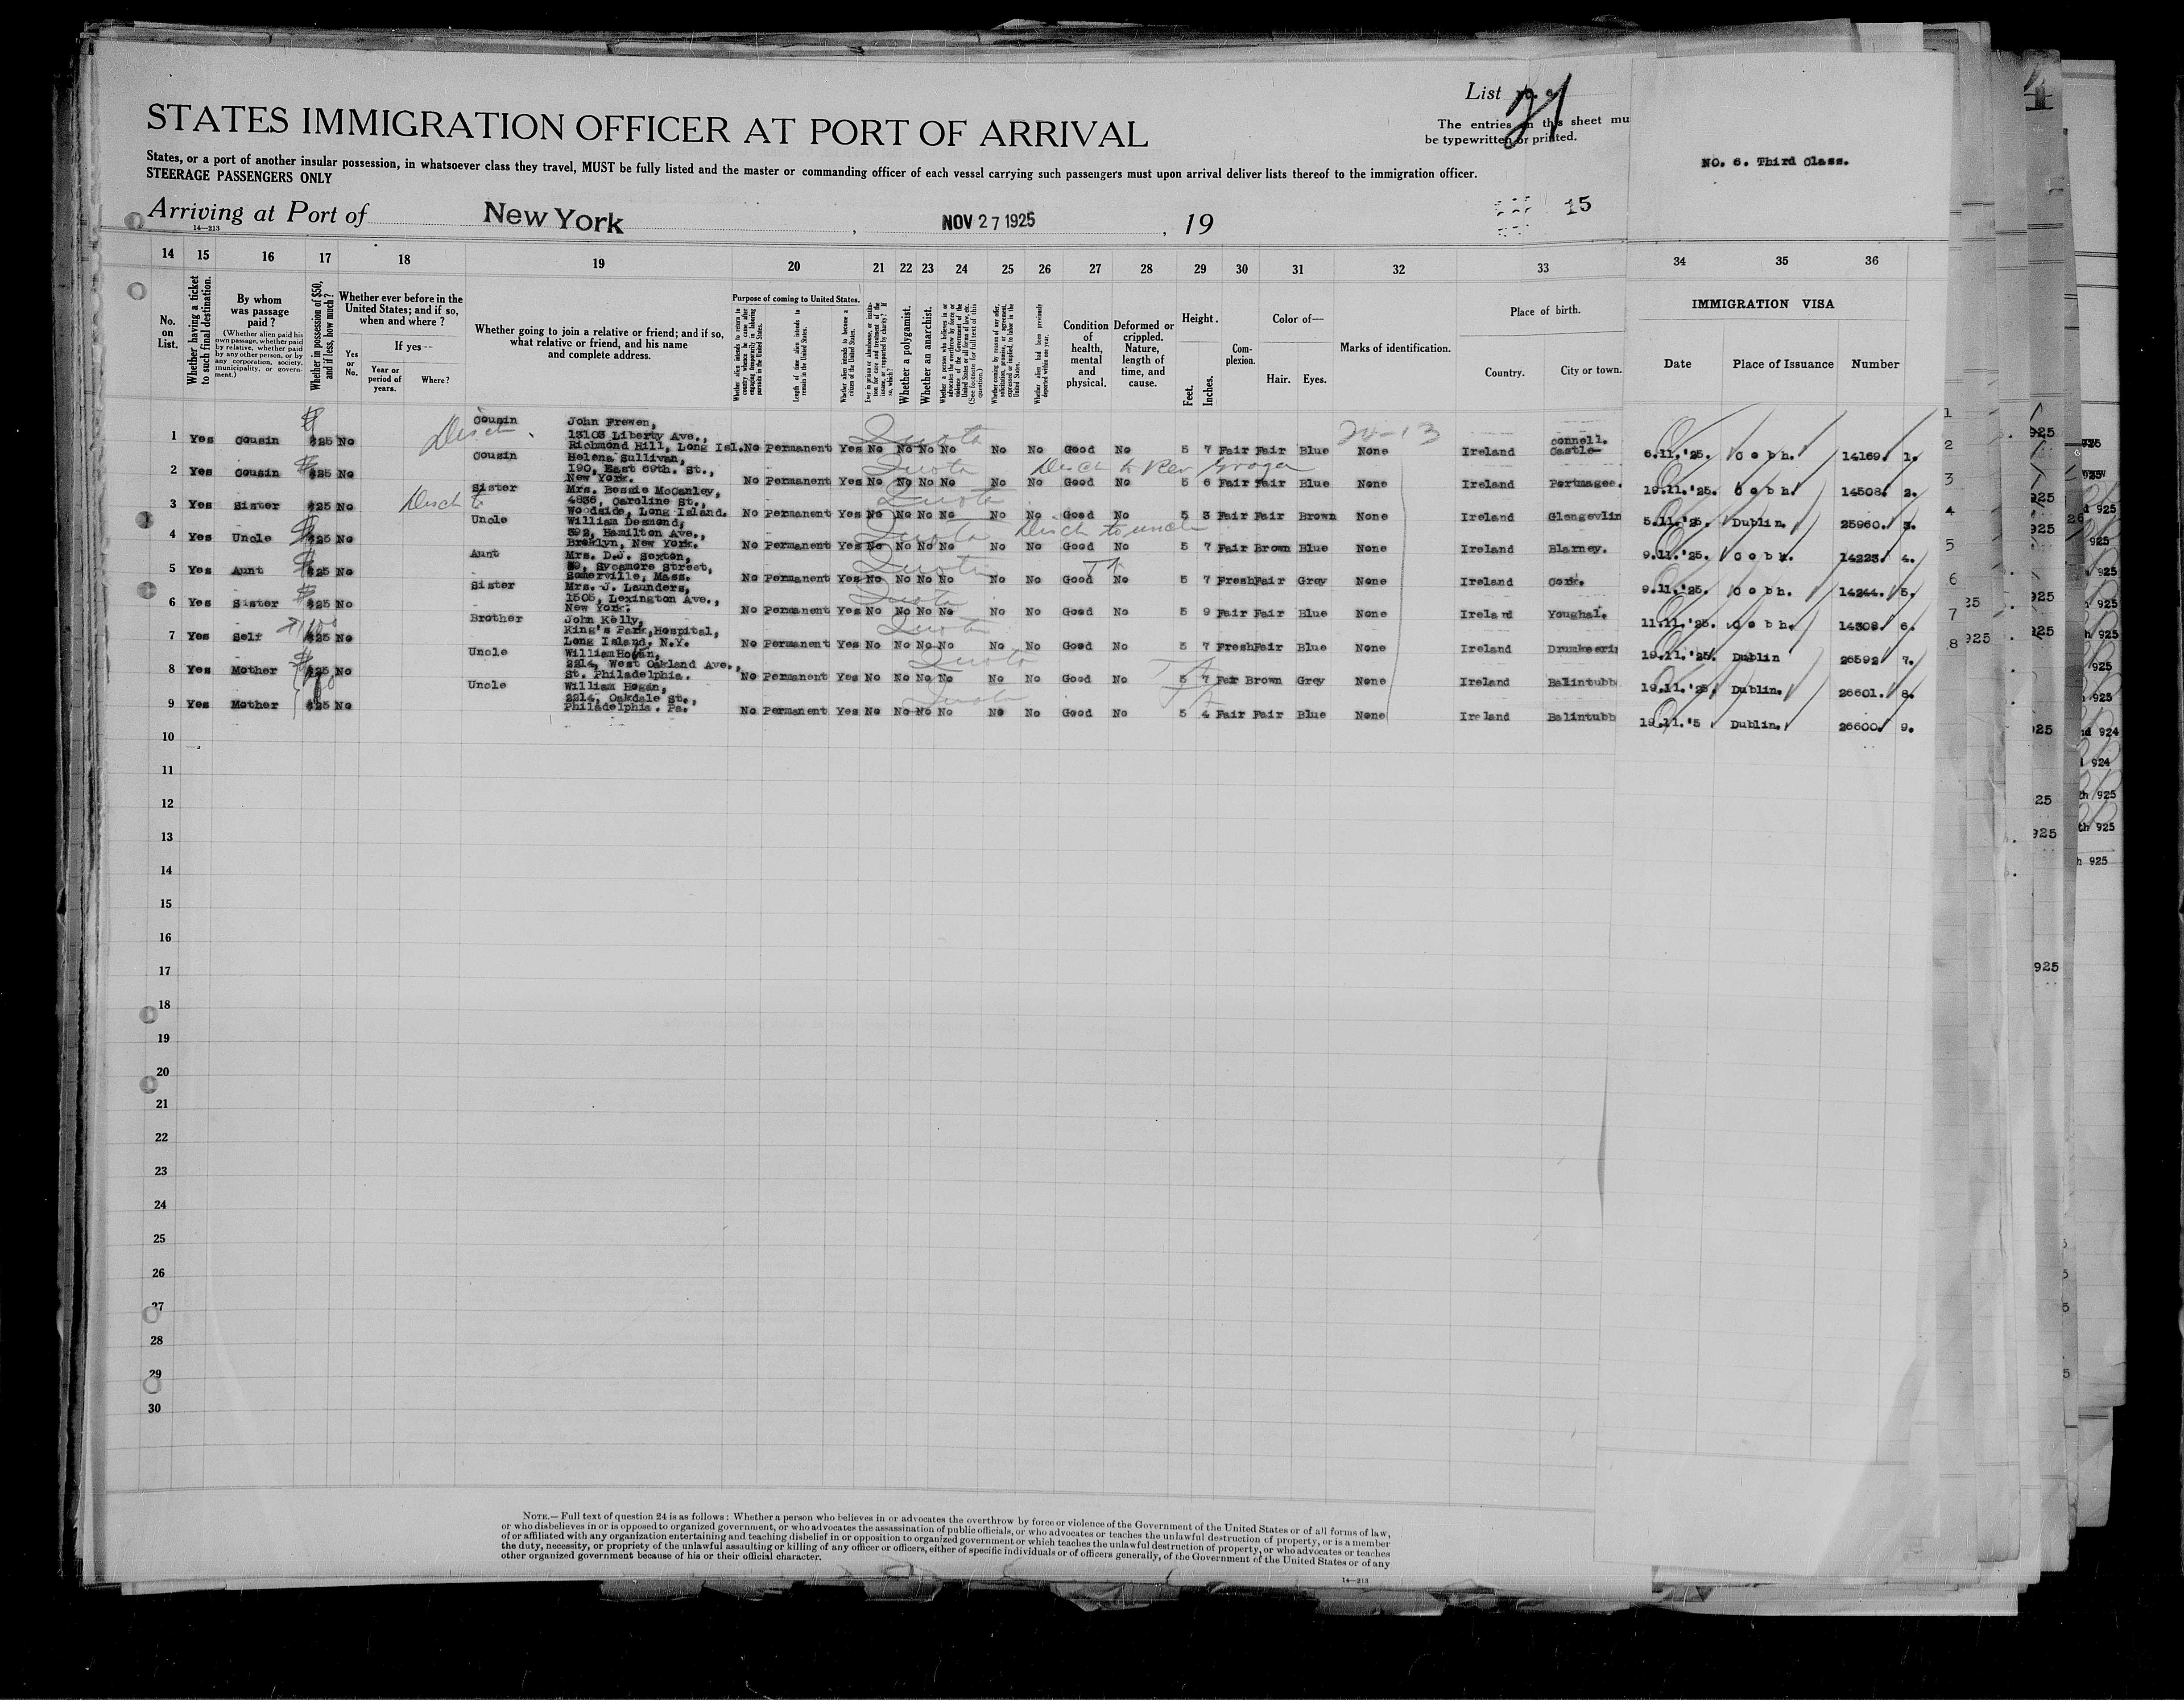 List
The entries in this sheet mu
be typewritten or printed.
STATES IMMIGRATION OFFICER AT PORT OF ARRIVAL
States, or a port of another insular possession, in whatsoever class they travel, MUST be fully listed and the master or commanding officer of each vessel carrying such passengers must upon arrival deliver lists thereof to the immigration officer.
STEERAGE PASSENGERS ONLY
NO. 6. Third Class.
Arriving at Port of New York, NOV 27 1925, 19
15
14—213
14 15 16 17 18 19 20 21 22 23 24 25 26 27 28 29 30 31 32 33 34 35 36
No. on List.
Whether having a ticket to such final destination.
By whom was passage paid?
(Whether alien paid his own passage, whether paid by relative, whether paid by any other person, or by any corporation, society, municipality, or government.)
Whether in possession of $50, and if less, how much?
Whether ever before in the United States; and if so, when and where?
Yes or No.
If yes—
Year or period of years.
Where?
Whether going to join a relative or friend; and if so, what relative or friend, and his name and complete address.
Purpose of coming to United States.
Whether alien intends to return to country whence he came after engaging temporarily in laboring pursuits in the United States.
Length of time alien intends to remain in the United States.
Whether alien intends to become a citizen of the United States.
Whether a polygamist.
Whether an anarchist.
Condition of health, mental and physical.
Deformed or crippled. Nature, length of time, and cause.
Height.
Feet.
Inches.
Complexion.
Color of—
Hair.
Eyes.
Marks of identification.
Place of birth.
Country.
City or town.
IMMIGRATION VISA
Date
Place of Issuance
Number
1 Yes Cousin $25 No Cousin John Frewen,
13103 Liberty Ave.,
Richmond Hill, Long Isl. No Permanent Yes No No No No No No Good No 5 7 Fair Fair Blue None Ireland Castle-
connell. 6.11.'25. Cobh. 14169. 1.
2 Yes Cousin $25 No Cousin Helena Sullivan,
190, East 69th. St.,
New York. No Permanent Yes No No No No No No Good No 5 6 Fair Fair Blue None Ireland Portmagee. 19.11.'25. Cobh. 14508. 2.
3 Yes Sister $25 No Sister Mrs. Bessie McCanley,
4836, Caroline St.,
Woodside, Long Island. No Permanent Yes No No No No No No Good No 5 3 Fair Fair Brown None Ireland Glengevlin 5.11.'25. Dublin. 25960. 3.
4 Yes Uncle $25 No Uncle William Desmond,
392, Hamilton Ave.,
Broklyn, New York. No Permanent Yes No No No No No No Good No 5 7 Fair Brown Blue None Ireland Blarney. 9.11.'25. Cobh. 14223. 4.
5 Yes Aunt $25 No Aunt Mrs. D.J. Sexton,
39, Sycamore Street,
Somerville, Mass. No Permanent Yes No No No No No No Good No 5 7 Fresh Fair Grey None Ireland Cork. 9.11.'25. Cobh. 14244. 5.
6 Yes Sister $25 No Sister Mrs. J. Launders,
1505, Lexington Ave.,
New York. No Permanent Yes No No No No No No Good No 5 9 Fair Fair Blue None Ireland Youghal. 11.11.'25. Cobh. 14308. 6.
7 Yes Self $25 No Brother John Kelly,
King's Park, Hospital,
Long Island. N.Y. No Permanent Yes No No No No No No Good No 5 7 Fresh Fair Blue None Ireland Drumkeeri 19.11.'25. Dublin 26592 7.
8 Yes Mother $25 No Uncle William Hogan,
2214, West Oakland Ave.,
St. Philadelphia. No Permanent Yes No No No No No No Good No 5 7 Fair Brown Grey None Ireland Balintubb 19.11.'25. Dublin. 26601. 8.
9 Yes Mother $25 No Uncle William Hogan,
2214, Oakdale St.,
Philadelphia. Pa. No Permanent Yes No No No No No No Good No 5 4 Fair Fair Blue None Ireland Balintubb 19.11.'5 Dublin. 26600. 9.
Quota
Disch to Rev Grogan
Disch to
Disch to uncle
10
11
12
13
14
15
16
17
18
19
20
21
22
23
24
25
26
27
28
29
30
NOTE.— Full text of question 24 is as follows: Whether a person who believes in or advocates the overthrow by force or violence of the Government of the United States or of all forms of law,
or who disbelieves in or is opposed to organized government, or who advocates the assassination of public officials, or who advocates or teaches the unlawful destruction of property, or is a member
of or affiliated with any organization entertaining and teaching disbelief in or opposition to organized government or which teaches the unlawful destruction of property, or who advocates or teaches
the duty, necessity, or propriety of the unlawful assaulting or killing of any officer or officers, either of specific individuals or of officers generally, of the Government of the United States or of any
other organized government because of his or their official character.
14—213